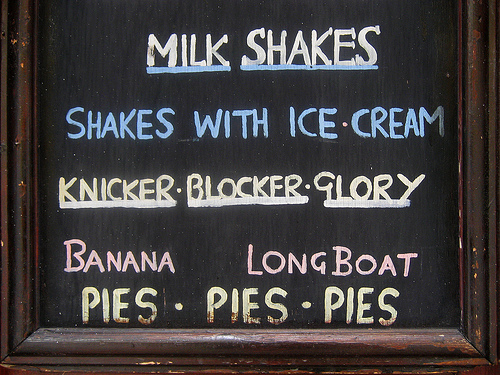 MILK SHAKES
SHAKES WITH ICE·CREAM
KNICKER·BLOCKER·GLORY
BANANA LONG BOAT
PIES · PIES · PIES